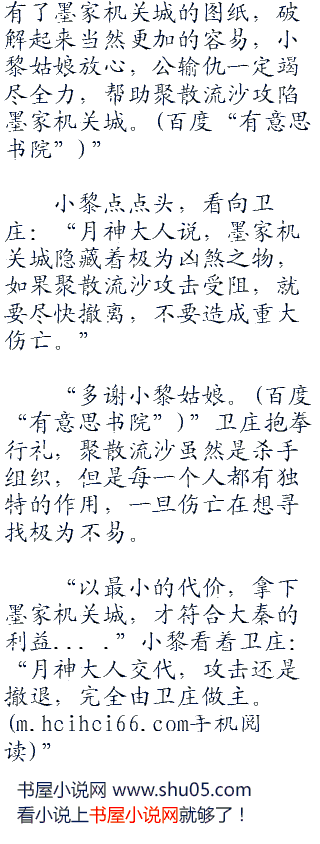 有了墨家机关城的图纸，破
解起来当然更加的容易，小
黎姑娘放心，公输仇一定竭
尽全力，帮助聚散流沙攻陷
墨家机关城。(百度“有意思
书院”)”
小黎点点头，看向卫
庄：“月神大人说，墨家机
关城隐藏着极为凶煞之物，
如果聚散流沙攻击受阻，就
要尽快撤离，不要造成重大
伤亡。”
“多谢小黎姑娘。(百度
“有意思书院”)”卫庄抱拳
行礼，聚散流沙虽然是杀手
组织，但是每一个人都有独
特的作用，一旦伤亡在想寻
找极为不易。
“以最小的代价，拿下
墨家机关城，才符合大秦的
利益.... .”小黎看着卫庄：
“月神大人交代，攻击还是
撤退，完全由卫庄做主。
(m.hcihci66.com手机阅
读)”
书屋小说网 www.shu05.com
看小说上书屋小说网就够了！